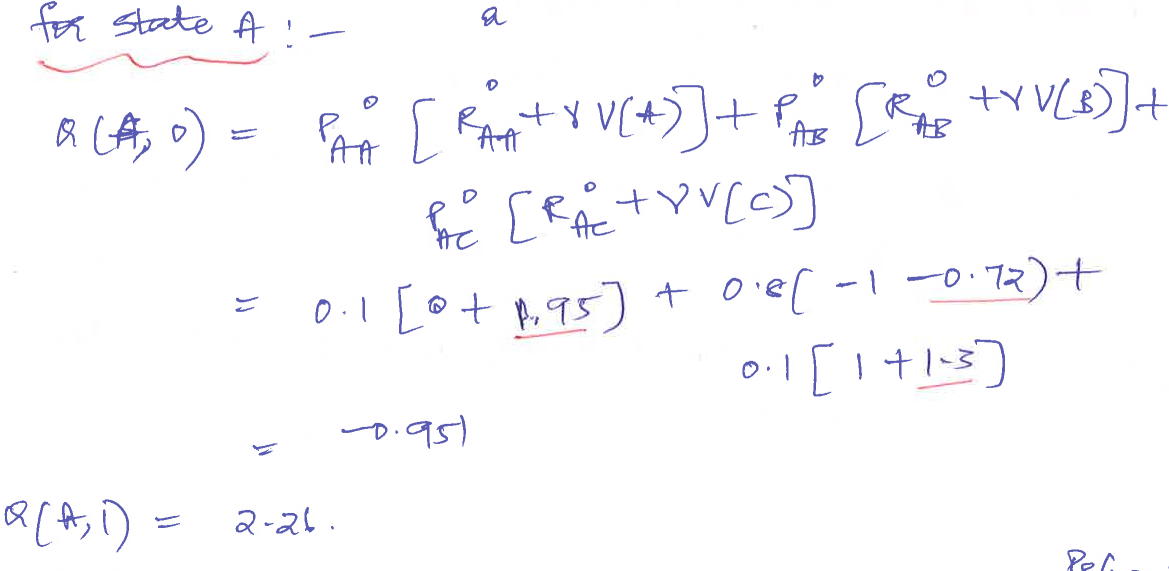 for state A :-
a
Q(A, 0) = P_{AA}^{0} [ R_{AA}^{0} + γ V(A) ] + P_{AB}^{0} [ R_{AB}^{0} + γ V(B) ] +
P_{AC}^{0} [ R_{AC}^{0} + γ V(C) ]
= 0.1 [ 0 + 1.95 ] + 0.8 ( -1 -0.72 ) +
0.1 [ 1 + 1.3 ]
= -0.951
Q(A, 1) = 2.26.